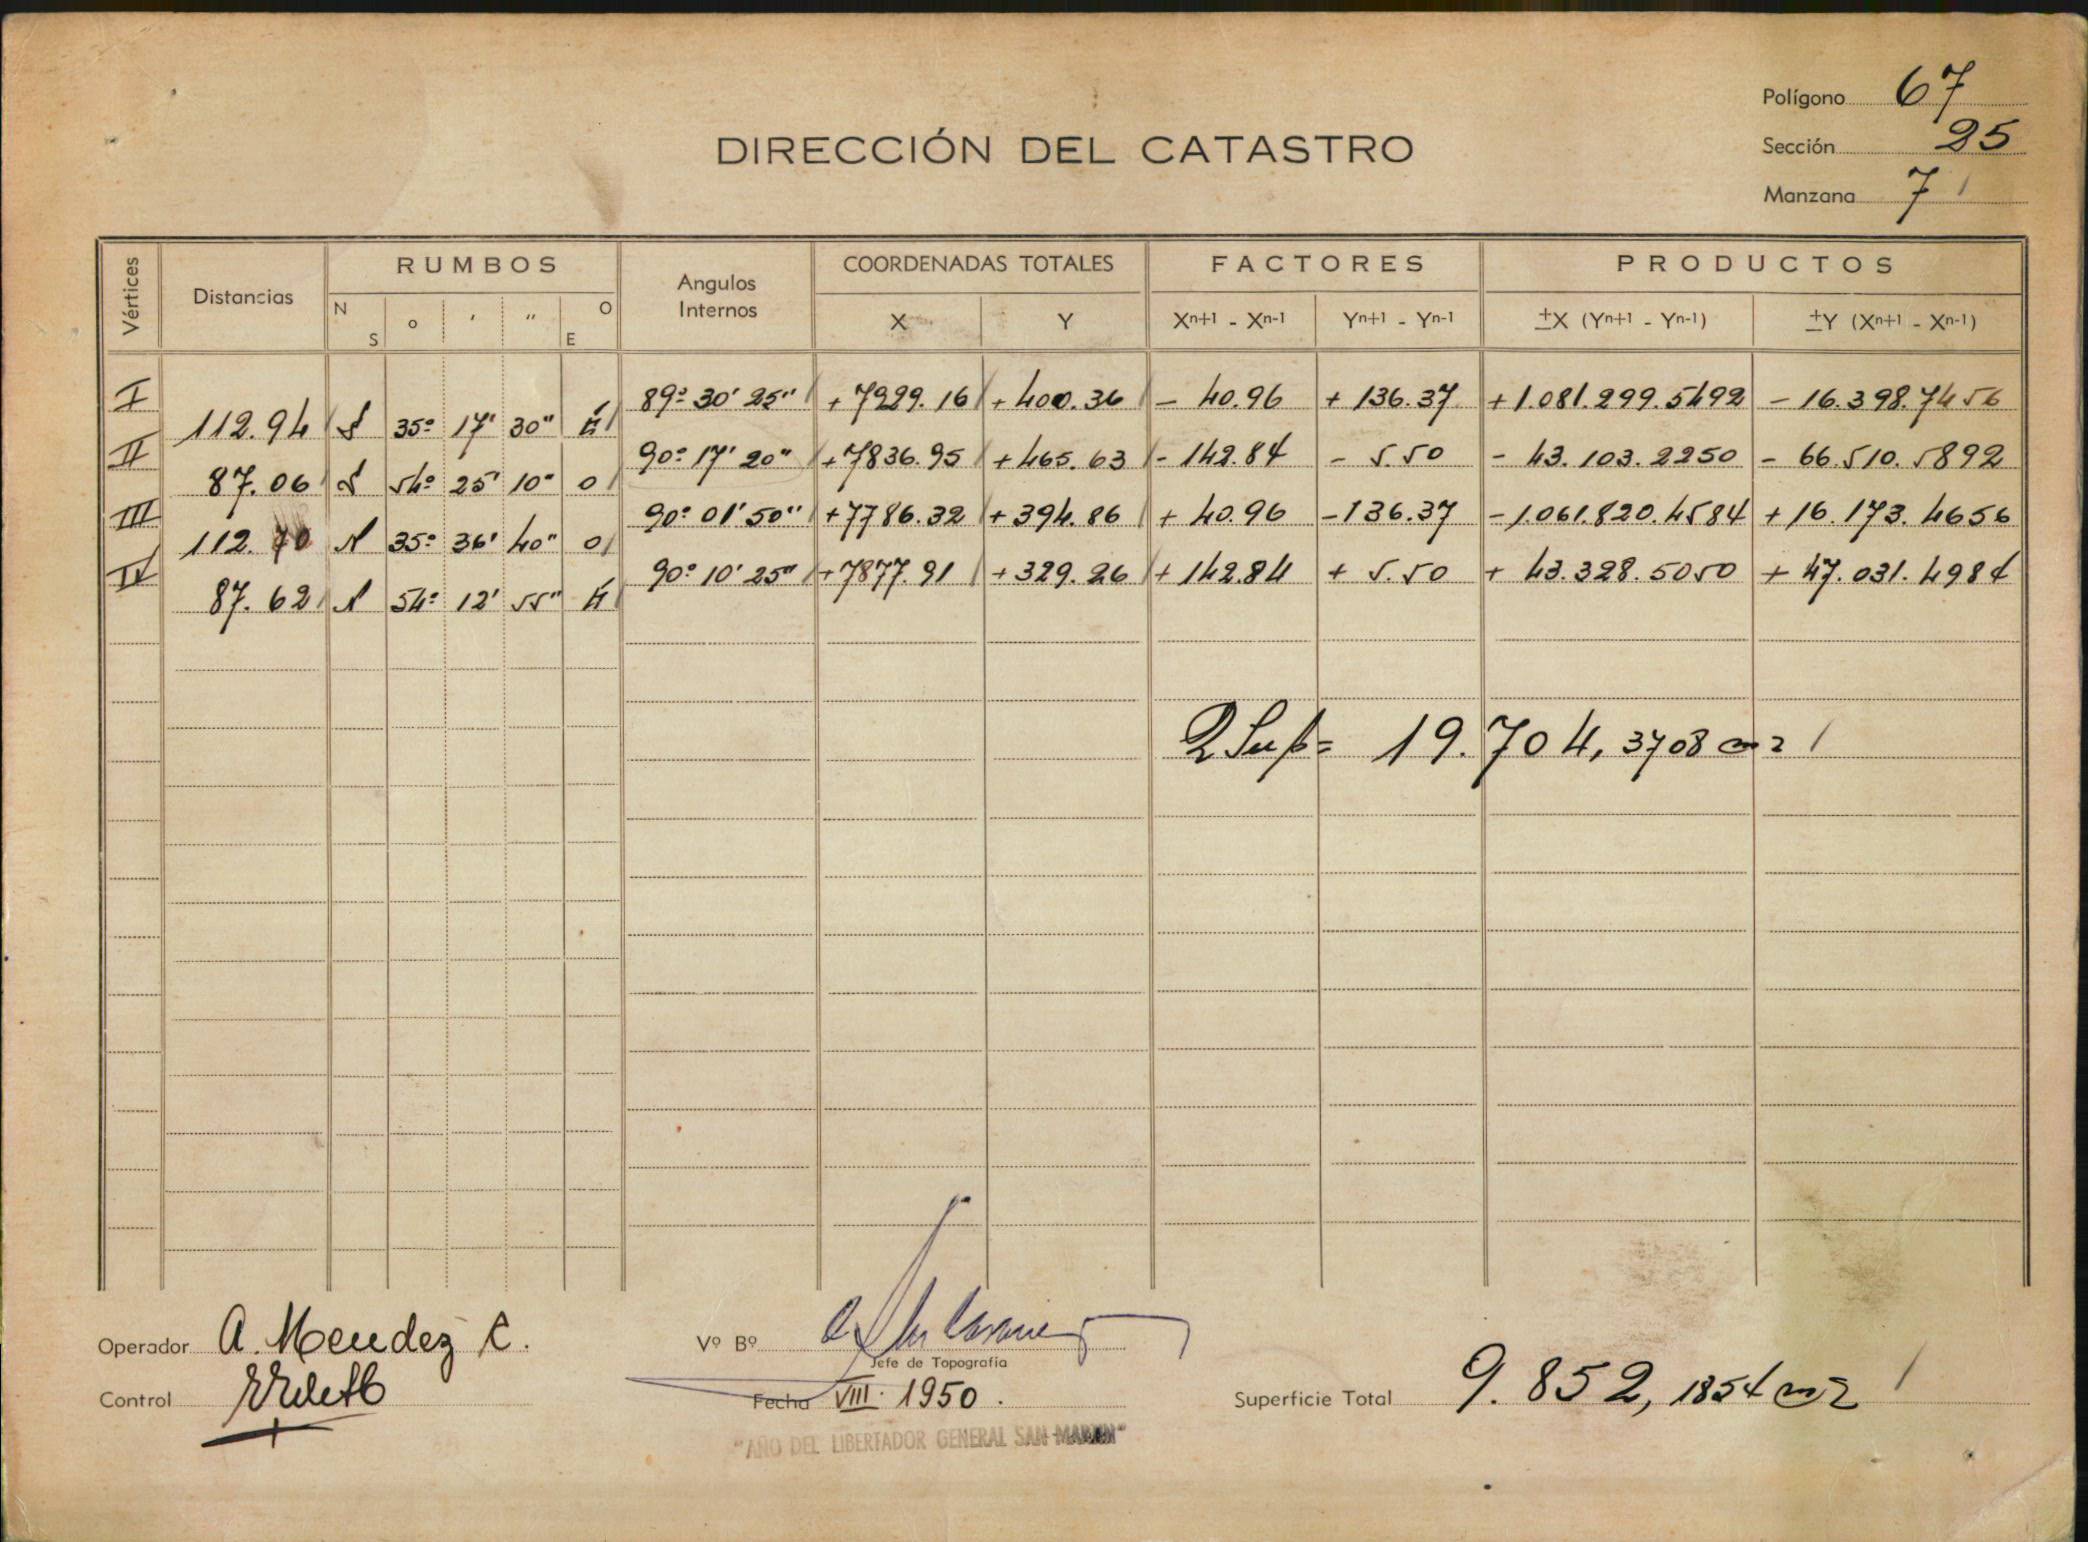 Polígono 67
Sección 25
Manzana 7
DIRECCIÓN DEL CATASTRO
Vértices Distancias RUMBOS Angulos Internos COORDENADAS TOTALES FACTORES PRODUCTOS
N S ° ' '' E O X Y Xn+1 - Xn-1 Yn+1 - Yn-1 ±X (Yn+1 - Yn-1) ±Y (Xn+1 - Xn-1)
I 89° 30' 25'' +7929.16 +400.36 - 40.96 + 136.37 +1.081.299.5492 - 16.398.7456
112.94 S 35° 17' 30'' E
II 90° 17' 20'' +7836.95 +465.63 - 142.84 - 5.50 - 43.103.2250 - 66.510.5892
87.06 S 54° 25' 10'' O
III 90° 01' 50'' +7786.32 + 394.86 + 40.96 -136.37 -1.061.820.4584 + 16.173.4656
112.70 N 35° 36' 40'' O
IV 90° 10' 25'' +7877.91 +329.26 + 142.84 + 5.50 + 43.328.5050 + 47.031.4984
87.62 N 54° 12' 55'' E
2 Sup = 19.704,3708 m2
Operador A. Mendez C.
Vº Bº
Jefe de Topografía
Control
Fecha VIII. 1950.
Superficie Total 9.852,1854 m2
"AÑO DEL LIBERTADOR GENERAL SAN MARTIN"